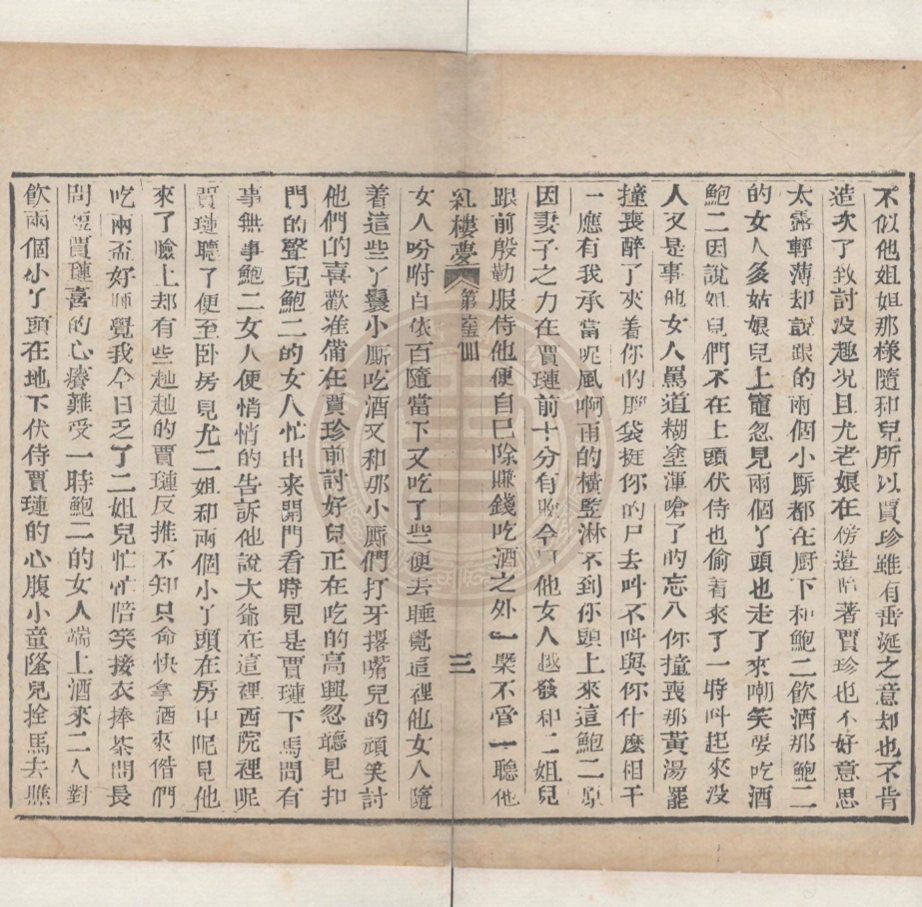 不似他姐姐那樣隨和兒所以賈珍雖有垂涎之意却也不肯
造次了致討没趣况且尤老娘在傍邉陪著賈珍也不好意思
太露輕薄却説跟的兩個小厮都在厨下和鮑二飲酒那鮑二
的女人多姑娘兒上竈忽見兩個丫頭也走了來嘲笑要吃酒
鮑二因説姐兒們不在上頭伏侍也偷着來了一時呌起來没
人又是事他女人罵道糊塗渾嗆了的忘八你撞喪那黄湯罷
撞喪醉了夾着你的腦袋挺你的尸去呌不呌與你什麽相干
一應有我承當呢風啊雨的橫竪淋不到你頭上來這鮑二原
因妻子之力在賈璉前十分有臉今日他女人越發和二姐兒
跟前殷勤服侍他便自已除賺錢吃酒之外一槩不管一聽他
紅樓夢 第壐囬 三
女人吩咐百依百隨當下又吃了些便去睡覺這裡他女人隨
着這些丫鬟小厮吃酒又和那小厮們打牙撂嘴兒的頑笑討
他們的喜歡准備在賈珍前討好兒正在吃的高興忽聽見扣
門的聲兒鮑二的女人忙出來開門看時見是賈璉下馬問有
事無事鮑二女人便悄悄的告訴他說大爺在這裡西院裡呢
賈璉聽了便至卧房見尤二姐和兩個小丫頭在房中呢見他
來了臉上却有些赸赸的賈璉反推不知只命快拿酒來偺們
吃兩盃好睡覺我今日乏了二姐兒忙忙陪笑接衣捧茶問長
問短賈璉喜的心癢難受一時鮑二的女人端上酒來二人對
飲兩個小丫頭在地下伏侍賈璉的心腹小童隆兒拴馬去瞧